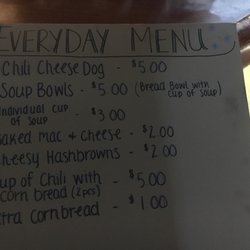 EVERYDAY MENU
Chili Cheese Dog - $5.00
Soup Bowls - $5.00 (Bread Bowl with
cup of soup)
Individual cup
of soup - $3.00
Baked Mac & Cheese - $2.00
Cheesy Hashbrowns - $2.00
Cup of Chili with
corn bread (2pcs) - $5.00
Extra Cornbread - $1.00